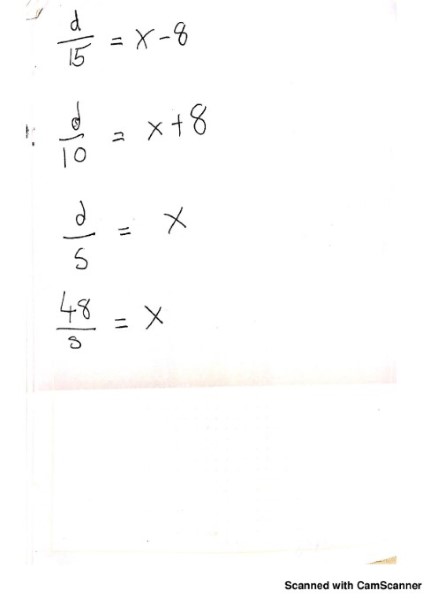 d/15 = x-8
d/10 = x+8
d/s = x
48/s = x
Scanned with CamScanner